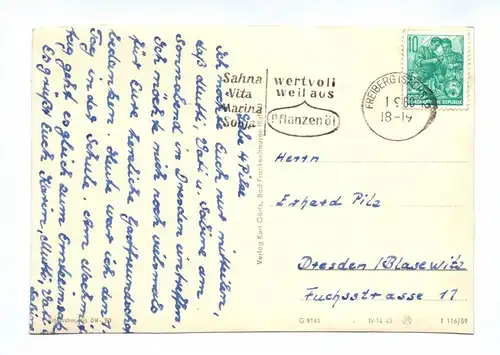 Liebe 4 Pilze
Ich möchte Euch nur mitteilen,
daß Mutti, Vati u. Sabine am
Sonnabend in Dresden eintreffen.
Ich möchte mich noch vielmals
für Eure herzliche Gastfreundschaft
bedanken. Heute war ich den 1.
Tag in der Schule. Am
geht es gleich zum
Es grüßt Euch Karin, Mutti, Vati
Sabine
Sahna
Vita
Marina
Sonja
wertvoll
weil aus
Pflanzenöl
FREIBERG (SACHS)
1 9
18-19
10
DEUTSCHE DEMOKRATISCHE REPUBLIK
Verlag Kurt Görtz, Bad Frankenhausen (Kyffh.)
Herrn
Erhard Pilz
Dresden / Blasewitz
Fuchsstrasse 17
G 9141
IV-14-45
1 116/59